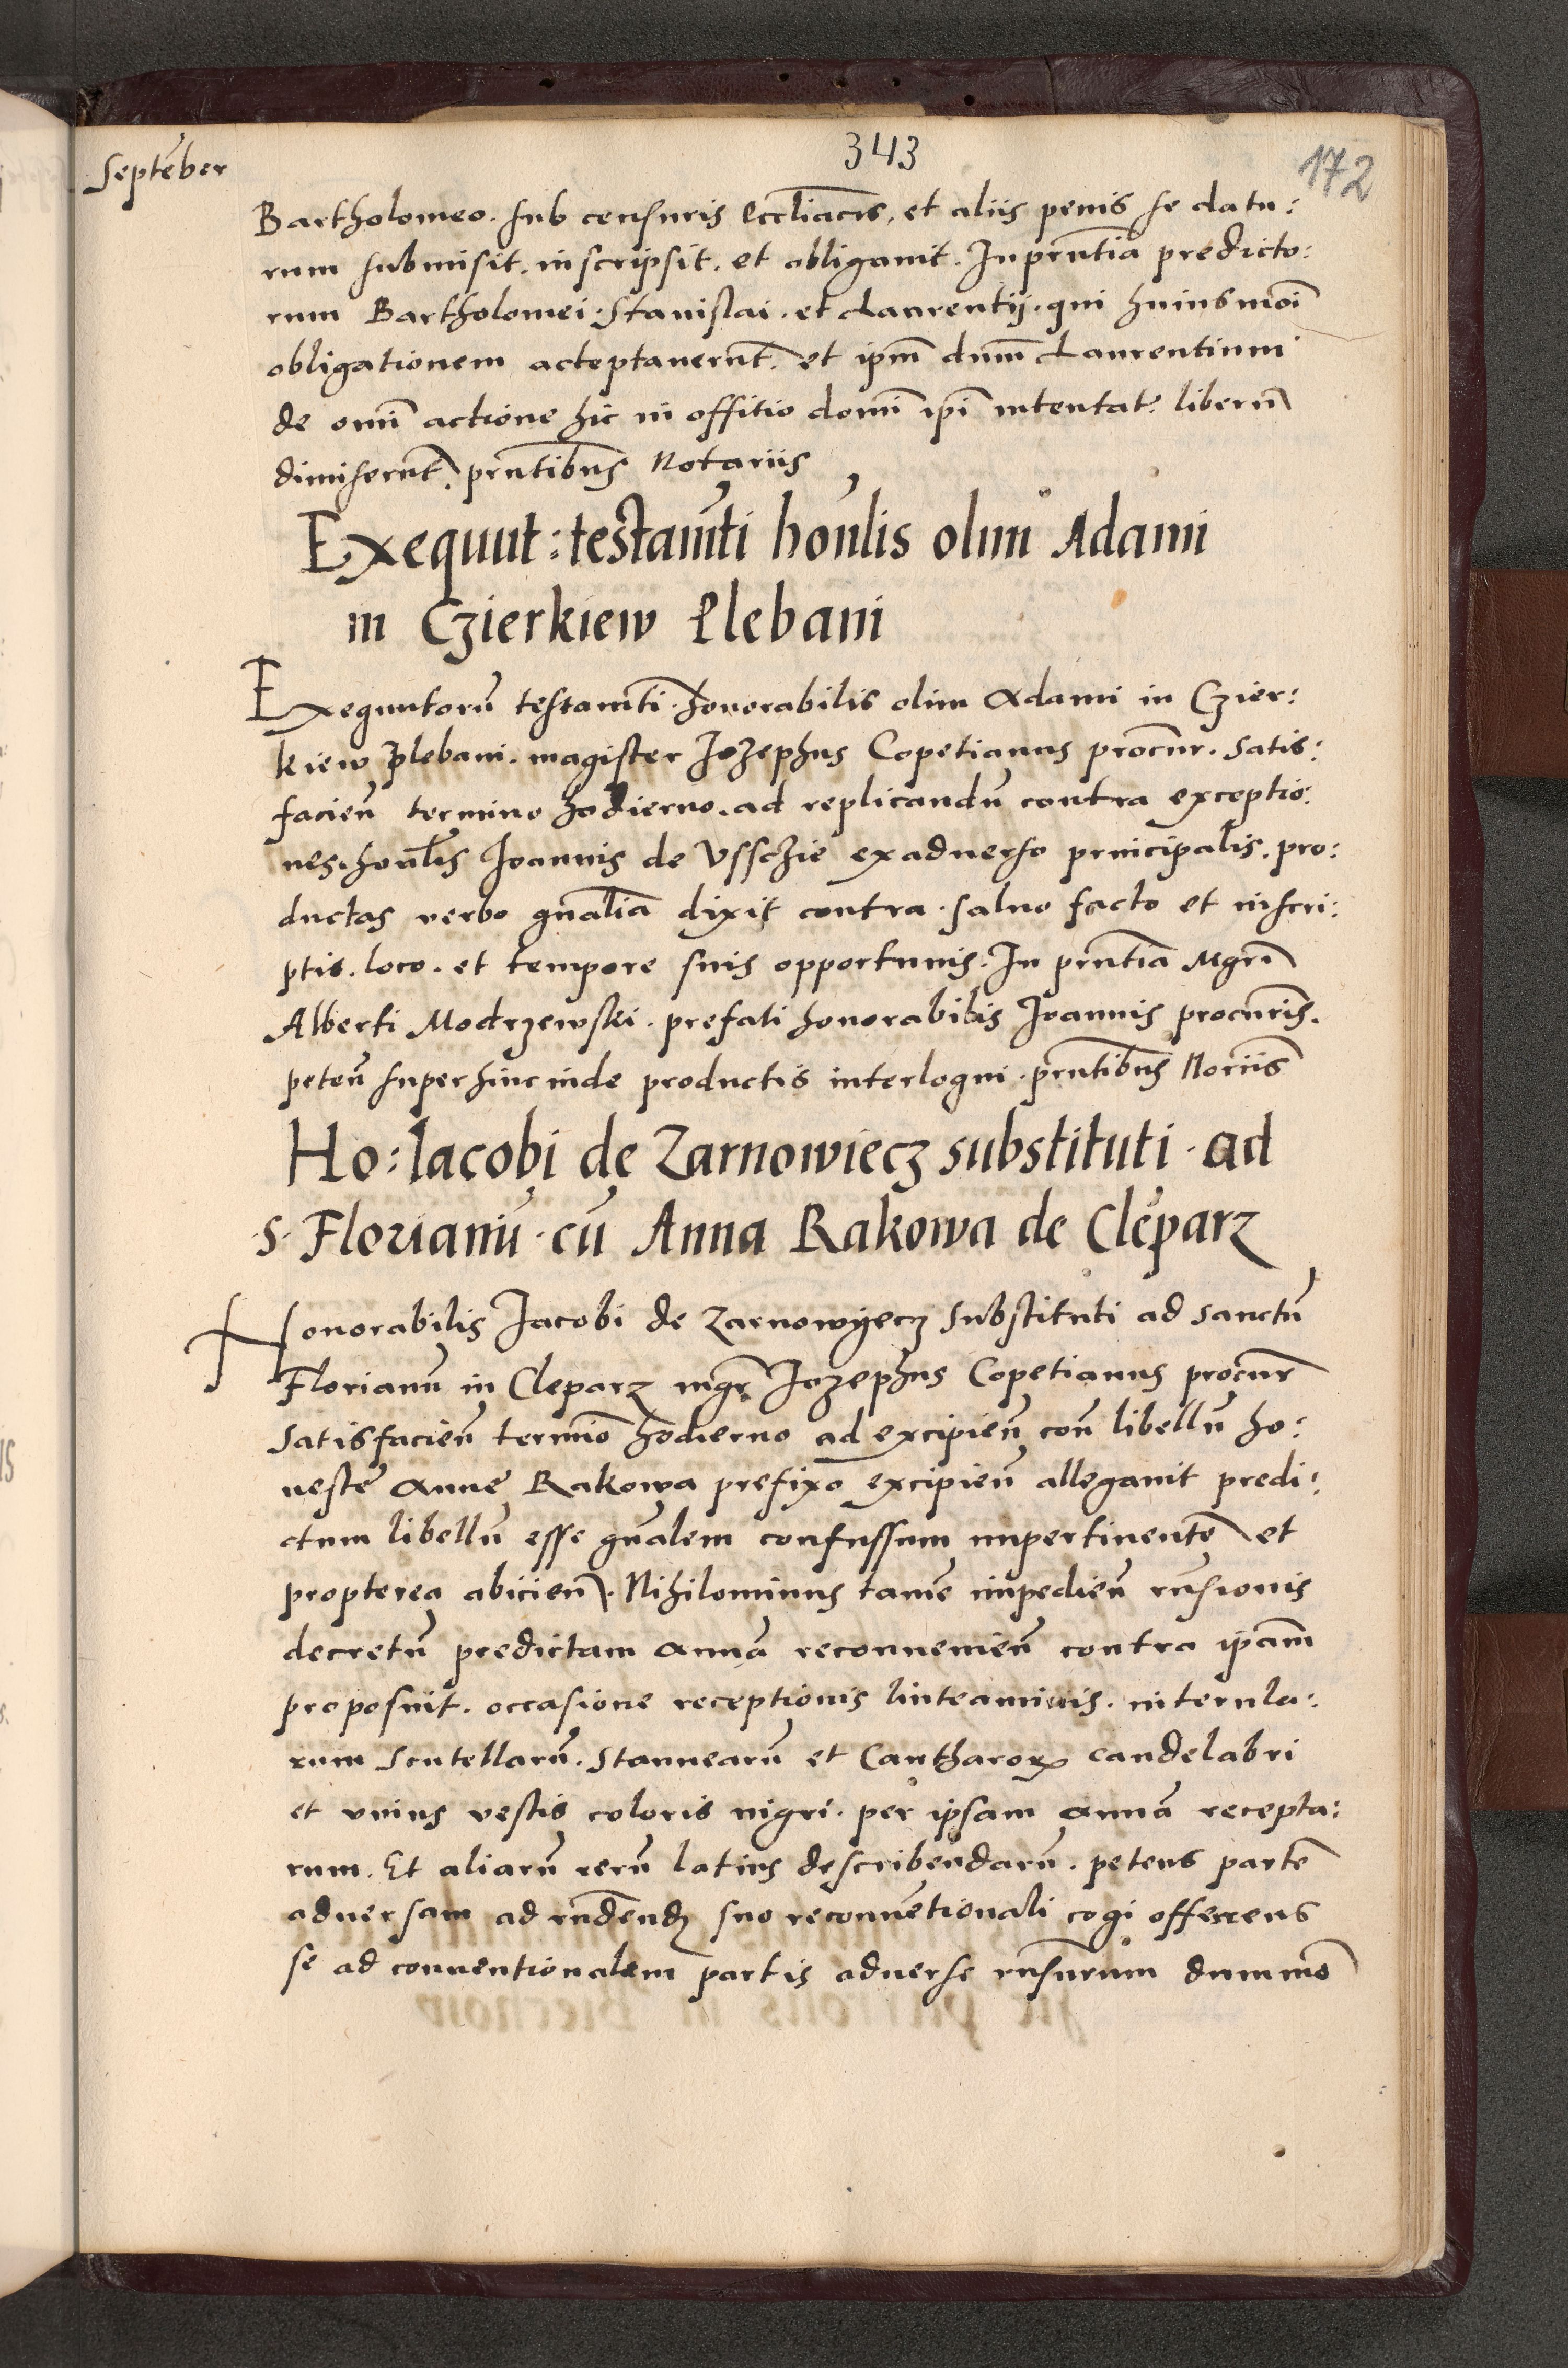 343
172
Septēber
Bartholomeo. sub censuris Eccl̄iacis, et aliis penis se datu:
rum submisit. inscripsit. et obligauit. In prn̄tia predicto:
rum Bartholomei. Stanislai. et Laurentij. qui huiusmōi
obligationem acceptauerūt. et ip̄m dn̄m Laurentium
de om̄i actione hic in offitio dom̄i ip̄i intentat: liberū
dimiserūt. prn̄tibus Notariis
Exequut: testam̄ti honl̄is olim Adami
in Czierkiew Plebani
Exequutorū testam̄ti honorabilis olim Adami in Czier:
kiew Plebani. magister Jozephus Copetianus procur. satis:
facieñ termino hodierno. ad replicandū contra exceptio:
nes. honl̄is Joannis de Vssczie ex aduerso principalis. pro:
ductas verbo gn̄alia dixit contra. saluo facto et in scri:
ptis. loco. et tempore suis opportunis. In prn̄tia Mgrī
Alberti Modrzewski. prefati honorabilis Joannis procur̄is.
peteñ super hinc inde productis interloqui. prn̄tibus Nōriis
Ho: Iacobi de Zarnowiecz substituti. ad
s. Florianū. cū Anna Rakowa de Cleparz
Honorabilis Jacobi de Zarnowyecz substituti ad sanctū
Florianū in Cleparz mgr̄ Jozephus Copetianus procur̄
satisfacieñ termīo hodierno ad excipieñ coñ libellū ho:
neste Anne Rakowa prefixo excipieñ allegauit predi:
ctum libellū esse gn̄alem confussum impertinentē et
propterea abicieñ. Nihilominus tamē impedieñ rn̄sionis
decretū predictam Annā reconuenieñ contra ip̄am
proposuit. occasione receptionis linteaminis. internla:
rum scutellarū. stannearū et Cantharorꝝ candelabri
et vnius vestis coloris nigri. per ipsam Annā recepta:
rum. Et aliarū rerū latius describēdarū. petens partē
aduersam ad rn̄dendꝫ suo reconuētionali cogi offerens
se ad conuentionalem partis aduerse rn̄surum dummō